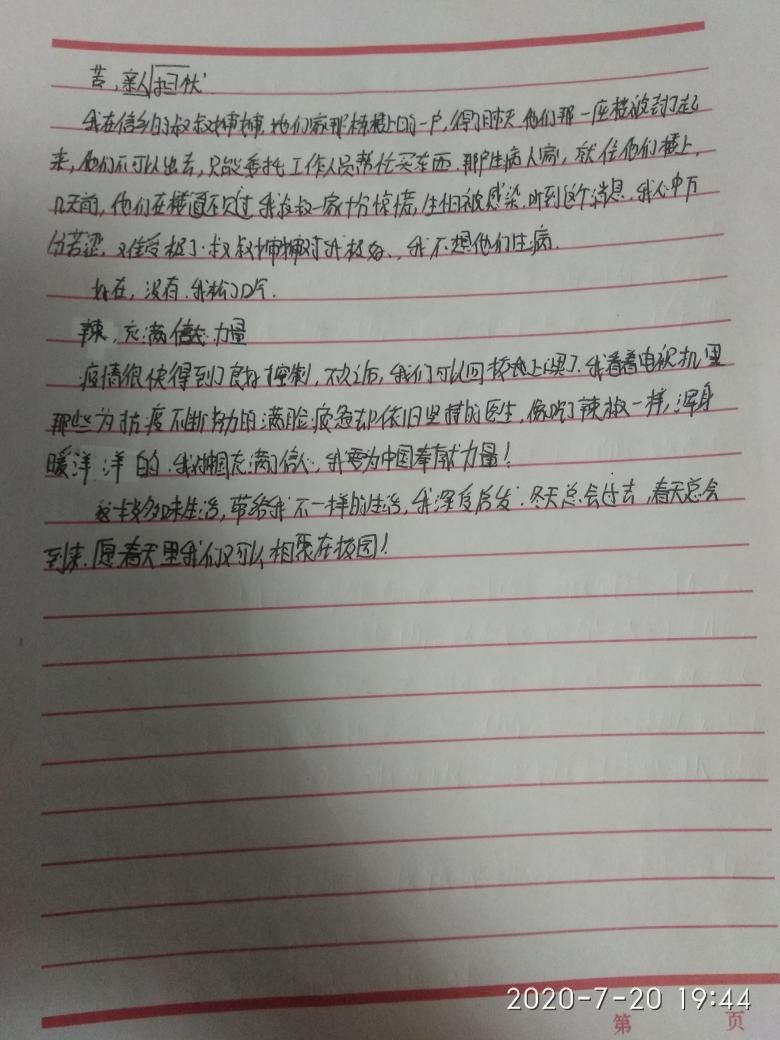 苦,亲人担忧
我在信乡的叔叔婶婶,他们家那栋楼上的一户,得了肺炎.他们那一座楼被封了起
来,他们不可以出去,只能委托工作人员帮忙买东西.那户生病人家,就住他们楼上,
几天前,他们在楼道还见过.我叔叔一家十分惊慌,生怕被感染.听到这个消息,我心中万
分苦涩,难受极了.叔叔婶婶对我极好,我不想他们生病.
好在,没有.我松了口气.
辣,充满信心力量
疫情很快得到了良好控制,不久之后,我们可以回校园上课了.我看着电视机里
那些为抗疫不断努力的满脸疲惫却依旧坚持的医生,像吃了辣椒一样,浑身
暖洋洋的.我对中国充满了信心,我要为中国奉献力量!
这多味生活,带给我不一样的生活,我深受启发.冬天总会过去,春天总会
到来.愿春天里我们又可以相聚在校园!
2020-7-20 19:44
第 页